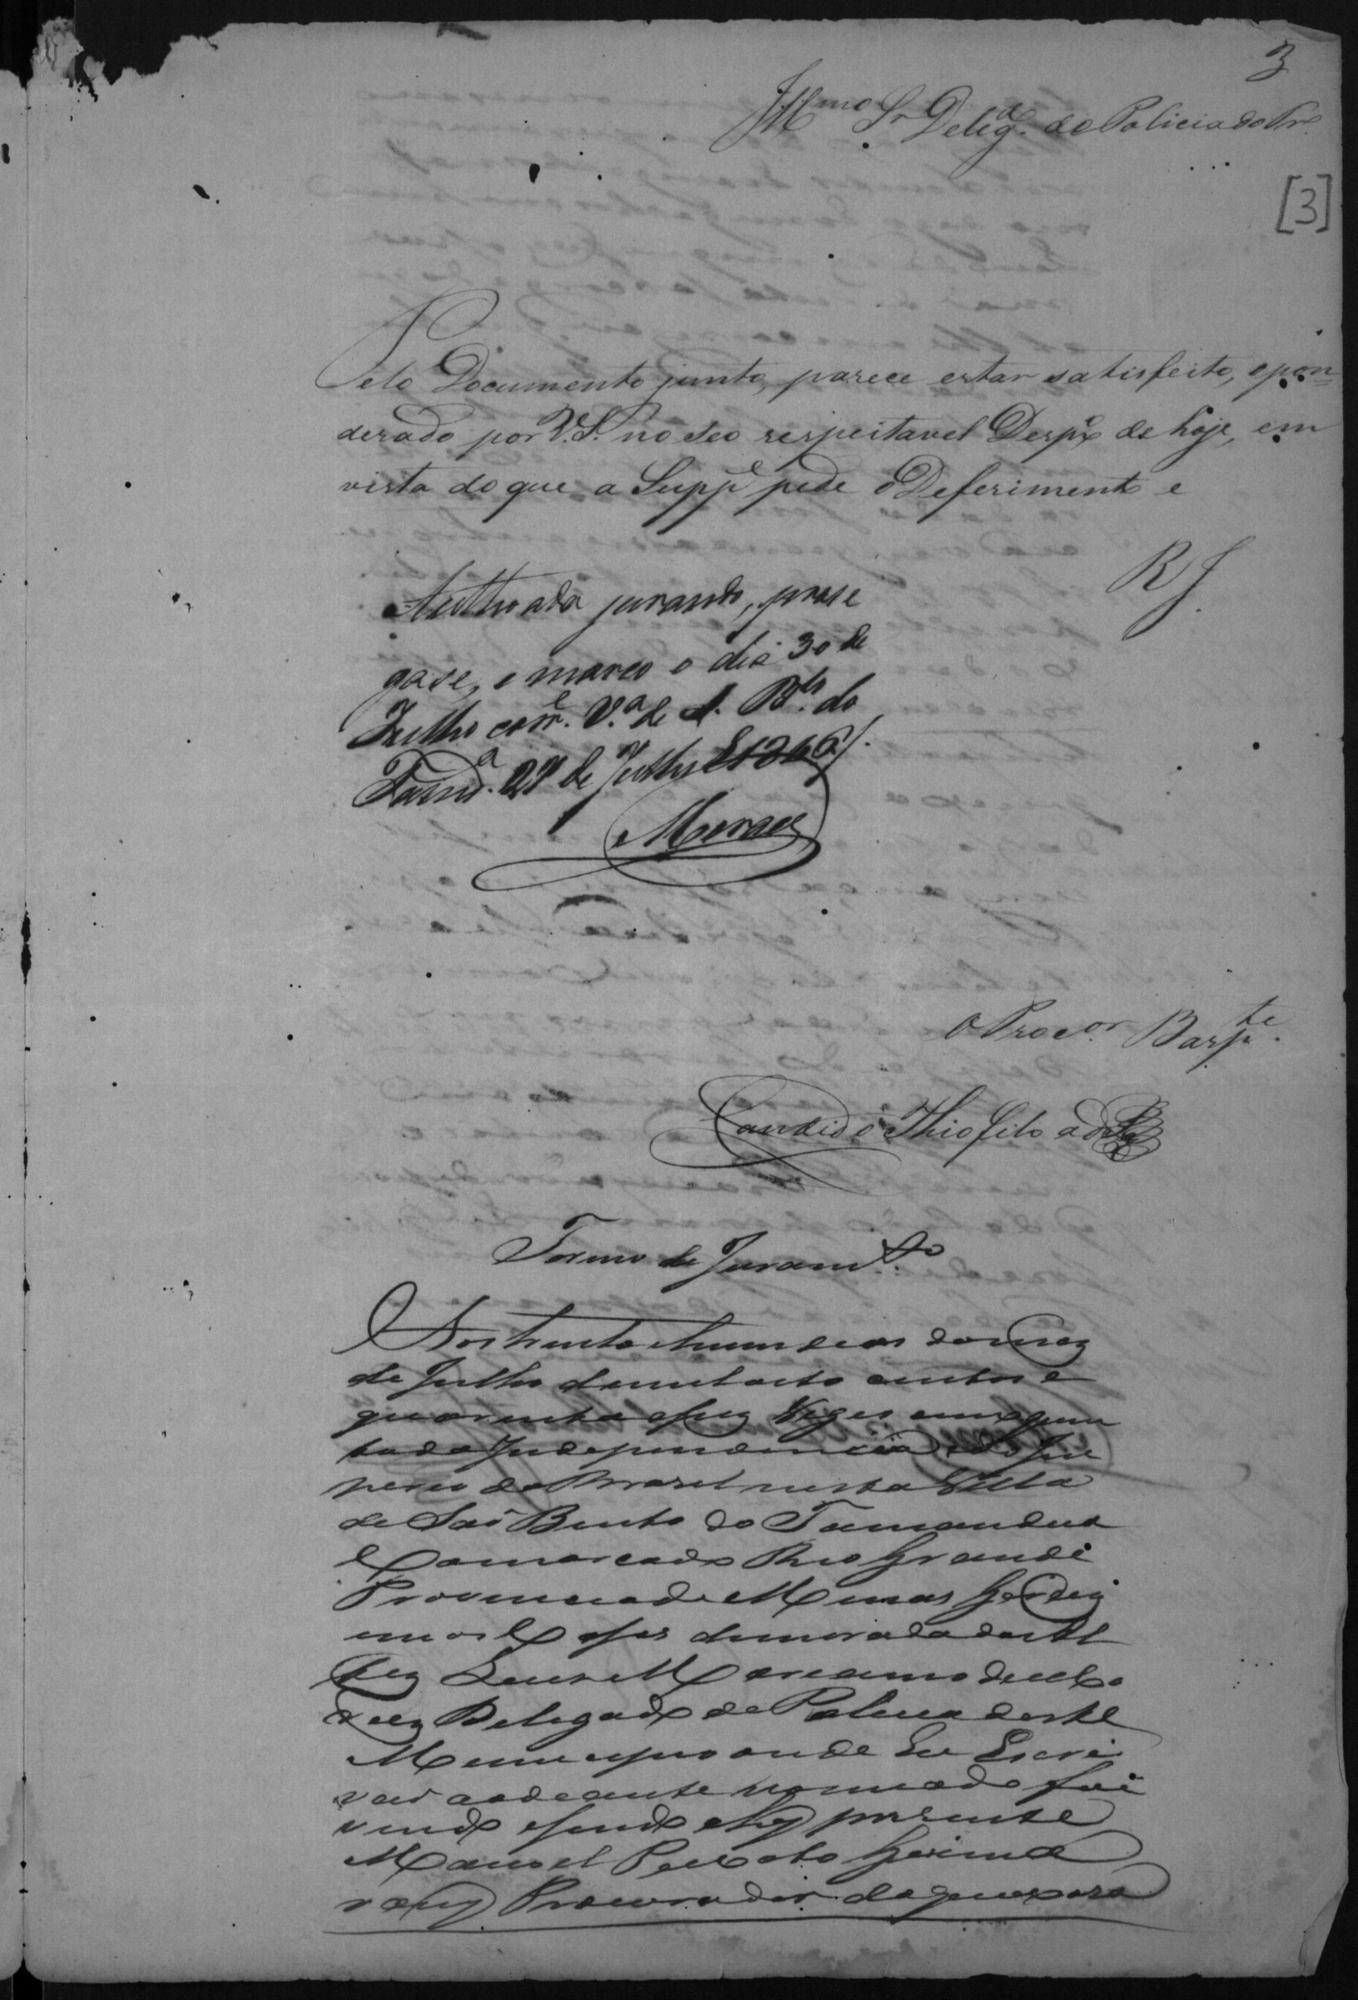 3
Illmo Sr Delego. de Policia do Pro.
[3]
Pelo Documento junto, parece estar satisfeito, o pon-
derado por V.S. no seo respeitavel Despo de hoje, em
vista do que a Suppe pede o Deferimento e
R J.
Authoada jurando, prosi
gase, e marco o dia 30 de
Julho corre. Va de S. Bto. do
Tamda. 27 de Julho
Moraes
O Procor. Bastte.
Candido Thiofilo
Termo de Juramto.
Aos trinta e hum dias do mez
de Julho de mil oito centos e
quarenta e seis Vigesimo quin
to da Independencia e do Im
perio do Brazil nesta Villa
de Sao Bento do Tamandua
Comarca do Rio Grande
Provincia de Minas Geraiz
em os Cazas de morada do
Juiz
Delegado de Policia deste
Municipio onde Eu Escri
vao aodeante nomeado fui
vindo e sendo ahy prezente
Manoel Peixoto Guima
raens Procurador da queixoza